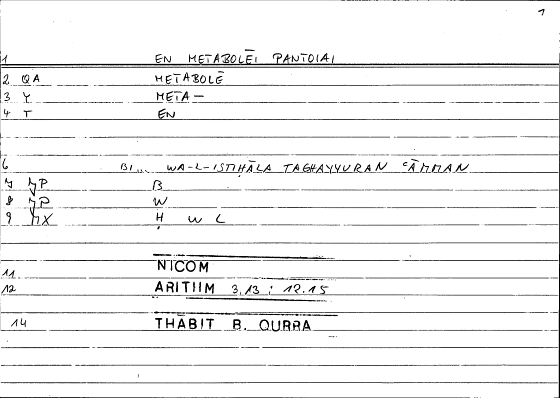 1
1 EN METABOLĒI PANTOIAI
2 QA METABOLĒ
3 Y META—
4 T EN
6 BI... WA-L-ISTIḤĀLA TAGHAYYURAN ʿĀMMAN
7 P B
8 P W
9 X Ḥ W L
11 NICOM
12 ARITIIM 3,13 : 12.15
14 THĀBIT B. QURRA